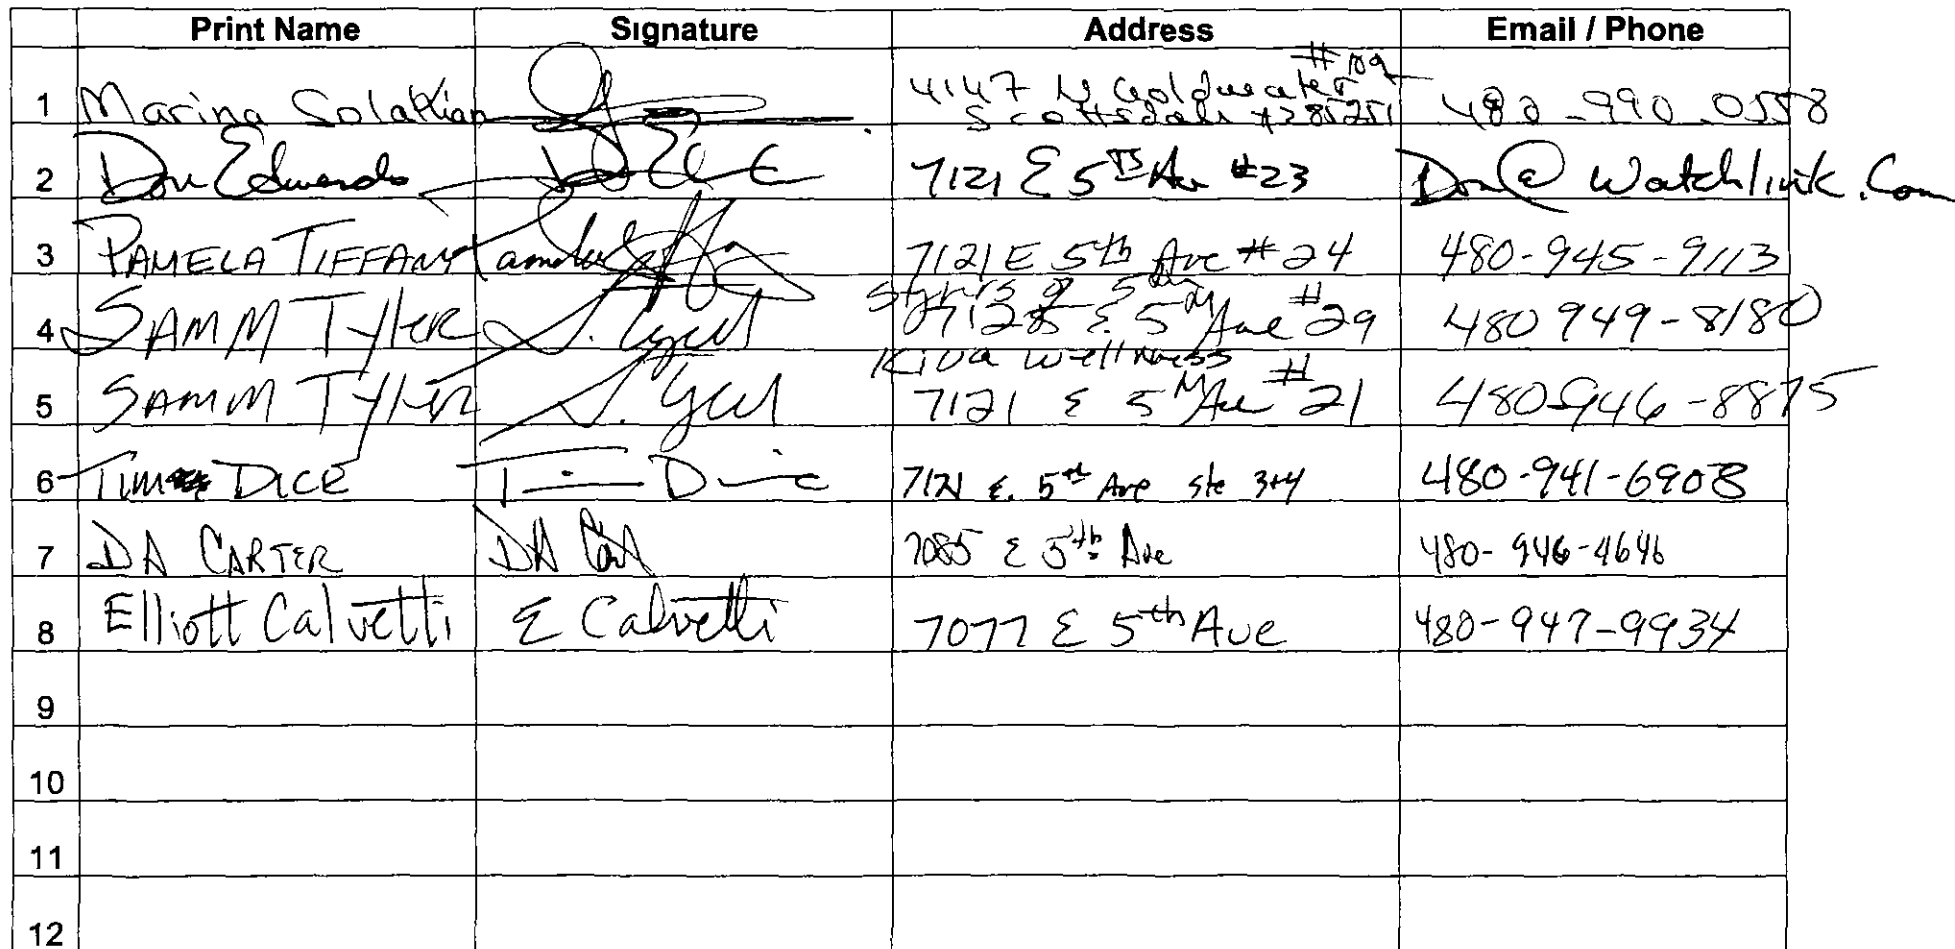 Print Name Signature Address Email / Phone
#109
1 Marina Solakian 4147 N Goldwater
Scottsdale AZ 85251 480-990-0558
2 Don Edwards 7121 E 5TH Ave #23 Don@Watchlink.Com
3 PAMELA TIFFANY Pamela Tiffany 7121 E 5th Ave #24 480-945-9113
of 5th
4 SAMM TYlER S. Tyler E. 5th Ave #29 480 949-8180
Kiva Wellness
5 SAMM TYlER S. Tyler 7121 E 5th Ave #21 480-946-8875
6 TIM DICE Ti D 7121 E. 5th Ave ste 3+4 480-941-6908
7 DA CARTER DA 7085 E 5th Ave 480-946-4646
8 Elliott Calvetti E Calvetti 7077 E 5th Ave 480-947-9934
9
10
11
12